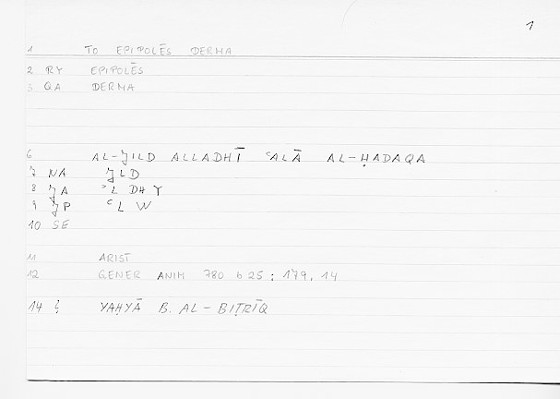 1
1 TO EPIPOLĒS DERMA
2 RY EPIPOLĒS
3 QA DERMA
6 AL-JILD ALLADHĪ ʿALĀ AL-ḤADAQA
7 NA JLD
8 JA ʾL DH Y
9 JP ʿL W
10 SE
11 ARIST
12 GENER ANIM 780 b 25 ; 179, 14
14 YAḤYĀ B. AL-BIṬRĪQ